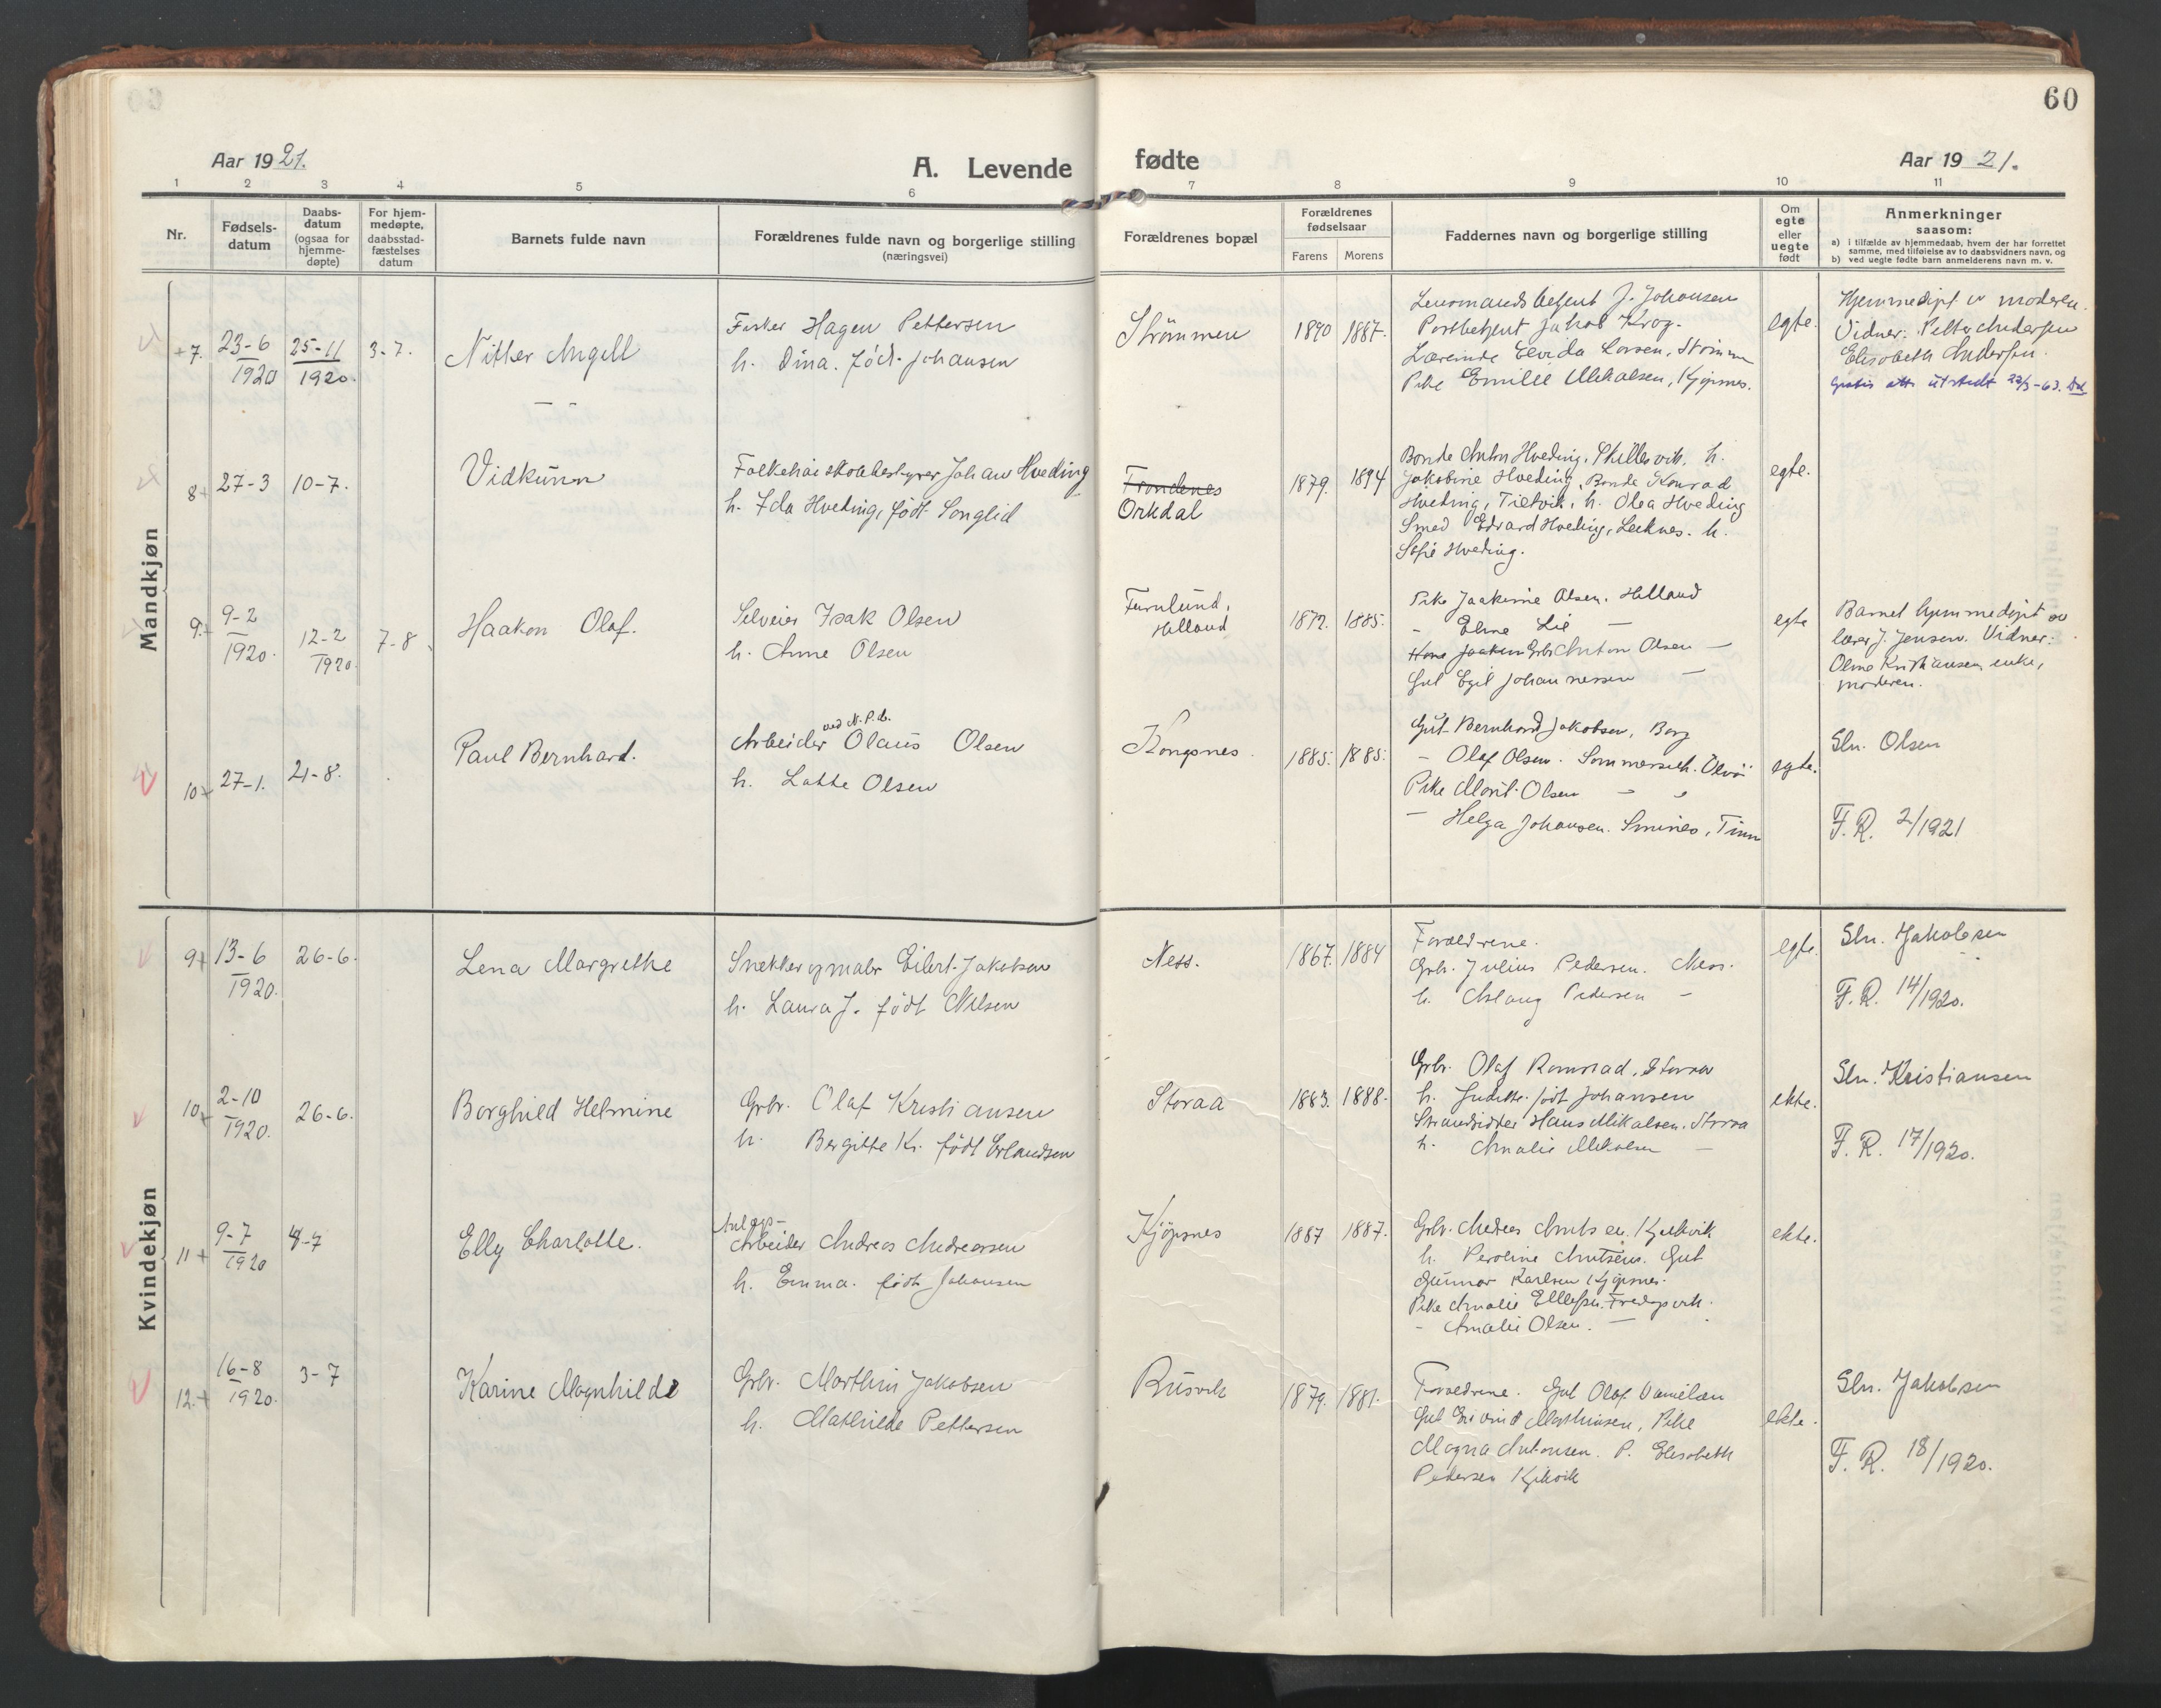 60
Aar 1921.
A. Levende
fødte
Aar 1921.
1 2 3 4 5 6 7 8 9 10 11
Nr.
Fødsels-
datum
Daabs-
datum
(ogsaa for
hjemme-
døpte)
For hjem-
medøpte,
daabsstad-
fæstelses
datum
Barnets fulde navn
Forældrenes fulde navn og borgerlige stilling
(næringsvei)
Forældrenes bopæl
Forældrenes
fødselsaar
Farens Morens
Faddernes navn og borgerlige stilling
Om
egte
eller
uegte
født
Anmerkninger
saasom:
a) i tilfælde av hjemmedaab, hvem der har forrettet
samme, med tilføielse av to daabsvidners navn, og
b) ved uegte fødte barn anmelderens navn m. v.
Mandkjøn
+7. 23-6 1920 25-11 1920. 3-7.
Angell
Fisker Hagen Pettersen
h. Dina. fød. Johansen
Strömmen
1890 1887.
Lensmandsbetjent J. Johansen
Postbetjent Jakob Krog.
Lærerinde Elvida Larsen, Strömmen
Pike Emilie Mikalsen, Kjöpsnes.
egte.
Hjemmedöpt av moderen.
Vidner: Petter Andersen
Elisabeth Andersen.
Gratis att. utstedt 22/3-63.
8+ 27-3 10-7.
Vidkunn
Folkehöiskolebestyrer Johan Hveding
h. Ida Hveding, født Songlid
Trondenes
Orkdal
1879. 1894
Bonde Anton Hveding, h.
Jakobine Hveding, Bonde Konrad
Hveding, h. Olea Hveding
Smed Edvard Hveding, Leknes. h.
Sofie Hveding.
egte.
9.+ 9-2 1920. 12-2 1920 7-8
Haakon Olaf.
Selveier Isak Olsen
h. Anne Olsen
Furulund,
Helland
1872. 1885.
Pike Jaakine Olsen. Helland
- Eline Lie —
Anton Olsen —
Gut Egil Johannessen —
egte
Barnet hjemmedöpt av
lærer J. Jensen. Vidner:
Oline Kristiansen, enke,
moderen.
10+ 27-1. 21-8.
Paul Bernhard.
ved N.P.C.
Arbeider Olaus Olsen
h. Lotte Olsen
Kongsnes.
1885. 1885.
Gut Bernhard Jakobsen, Borg
- Olaf Olsen.
Pike Marit Olsen
- Helga Johansen.
egte.
Sln. Olsen
F.R. 2/1921
Kvindekjøn
9+ 13-6 1920. 26-6.
Lena Margrethe
Snekker og maler Eilert Jakobsen
h. Laura J. født Nilsen
Ness.
1867. 1884
Forældrene.
Grb. Julius Pedersen. Ness.
h. Aslaug Pedersen —
egte.
Sln. Jakobsen
F.R. 14/1920.
10+ 2-10 1920. 26-6.
Borghild Helmine
Grbr. Olaf Kristiansen
h. Bergitte Kr. født Erlandsen
Storaa
1883. 1888.
Grbr. Olaf Storaa
h. født Johansen
Strandsidder Hans Mikalsen. Storaa
h. Amalie Mikalsen —
ekte.
Sln. Kristiansen
F.R. 17/1920.
11+ 9-7 1920 4-7
Elly Charlotte.
Arbeider Andreas Andreassen
h. Emma. født Johansen
Kjöpsnes
1887 1887.
h. Peroline Gut
Gunnar Karlsen Kjöpsnes.
Pike Amalie
- Amalie Olsen. —
ekte.
12.+ 16-8 1920. 3-7
Karine Magnhilde
Grbr. Marthin Jakobsen
h. Mathilde Pettersen
Rusvik
1879. 1881.
Forældrene. Gut Olaf Danielsen
Gut Eivind Mathisen, Pike
Magna Antonsen. P. Elisabeth
Pedersen
ekte.
Sln. Jakobsen
F.R. 18/1920.